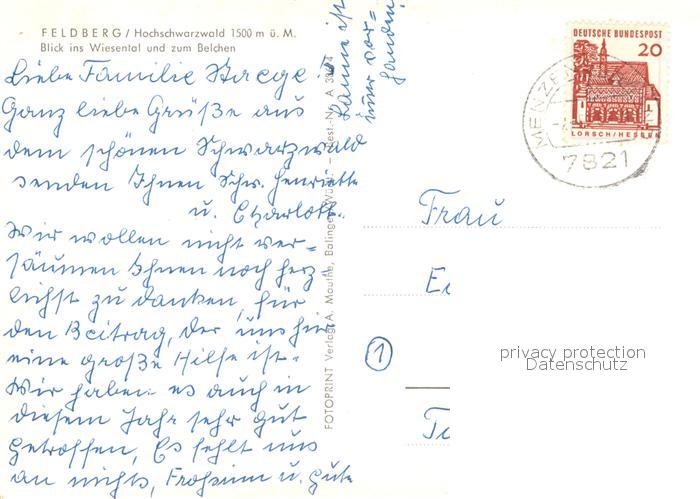 FELDBERG / Hochschwarzwald 1500 m ü. M.
Blick ins Wiesental und zum Belchen
Liebe Familie
Ganz liebe Grüße aus
dem schönen Schwarzwald
senden Ihnen Schw. Henriette
u. Charlott.
Wir wollen nicht ver-
säumen Ihnen noch herz-
lichst zu danken, für
den Beitrag, der uns hier
eine große Hilfe ist.
Wir haben es auch in
diesem Jahr sehr gut
getroffen, Es fehlt uns
an nichts, Frohsinn u. gute
Laune ist
immer vor-
handen
FOTOPRINT Verlag A. Mauthe, Balingen/Württ. – Best.-Nr. A
DEUTSCHE BUNDESPOST
20
LORSCH/HESSEN
7821
Frau
1
privacy protection
Datenschutz